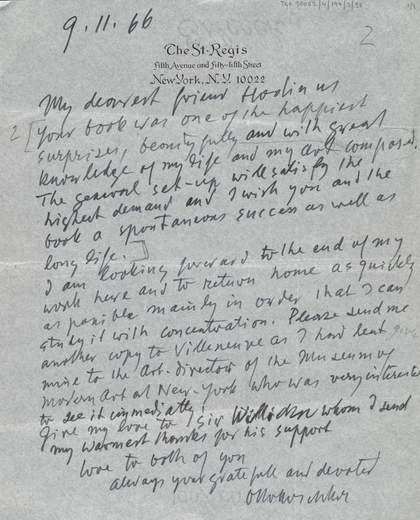 TGA 20082/4/190/2/58
9.11.66
2
The St-Regis
Fifth Avenue and Fifty-fifth Street
New York, N.Y. 10022
My dearest friend Hodin us
2 [your book was one of the happiest
surprises, beautifully and with great
knowledge of my life and my Art composed.
The general set-up will satisfy the
highest demand and I wish you and the
book a spontaneous success as well as
long life.]
I am looking forward to the end of my
work here and to return home as quickly
as possible mainly in order that I can
study it with concentration. Please send me
another copy to Villeneuve as I had lent
mine to the Art-director of the Museum of
Modern Art at New-York who was very interested
to see it immediatly!
Give my love to Sir whom I send
my warmest thanks for his support
love to both of you
always your gratefull and devoted